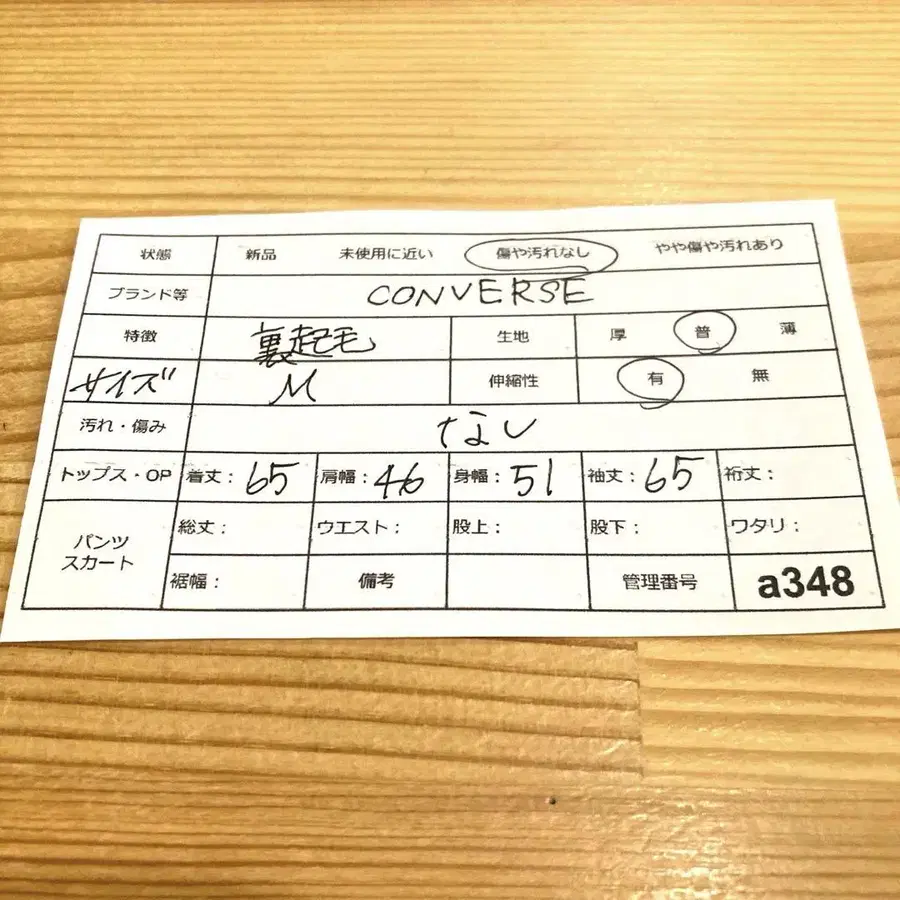 状態 新品 未使用に近い 傷や汚れなし やや傷や汚れあり
ブランド等 CONVERSE
特徴 裏起毛 生地 厚 普 薄
サイズ M 伸縮性 有 無
汚れ・傷み なし
トップス・OP 着丈: 65 肩幅: 46 身幅: 51 袖丈: 65 裄丈:
パンツ
スカート
総丈: ウエスト: 股上: 股下: ワタリ:
裾幅: 備考 管理番号 a348